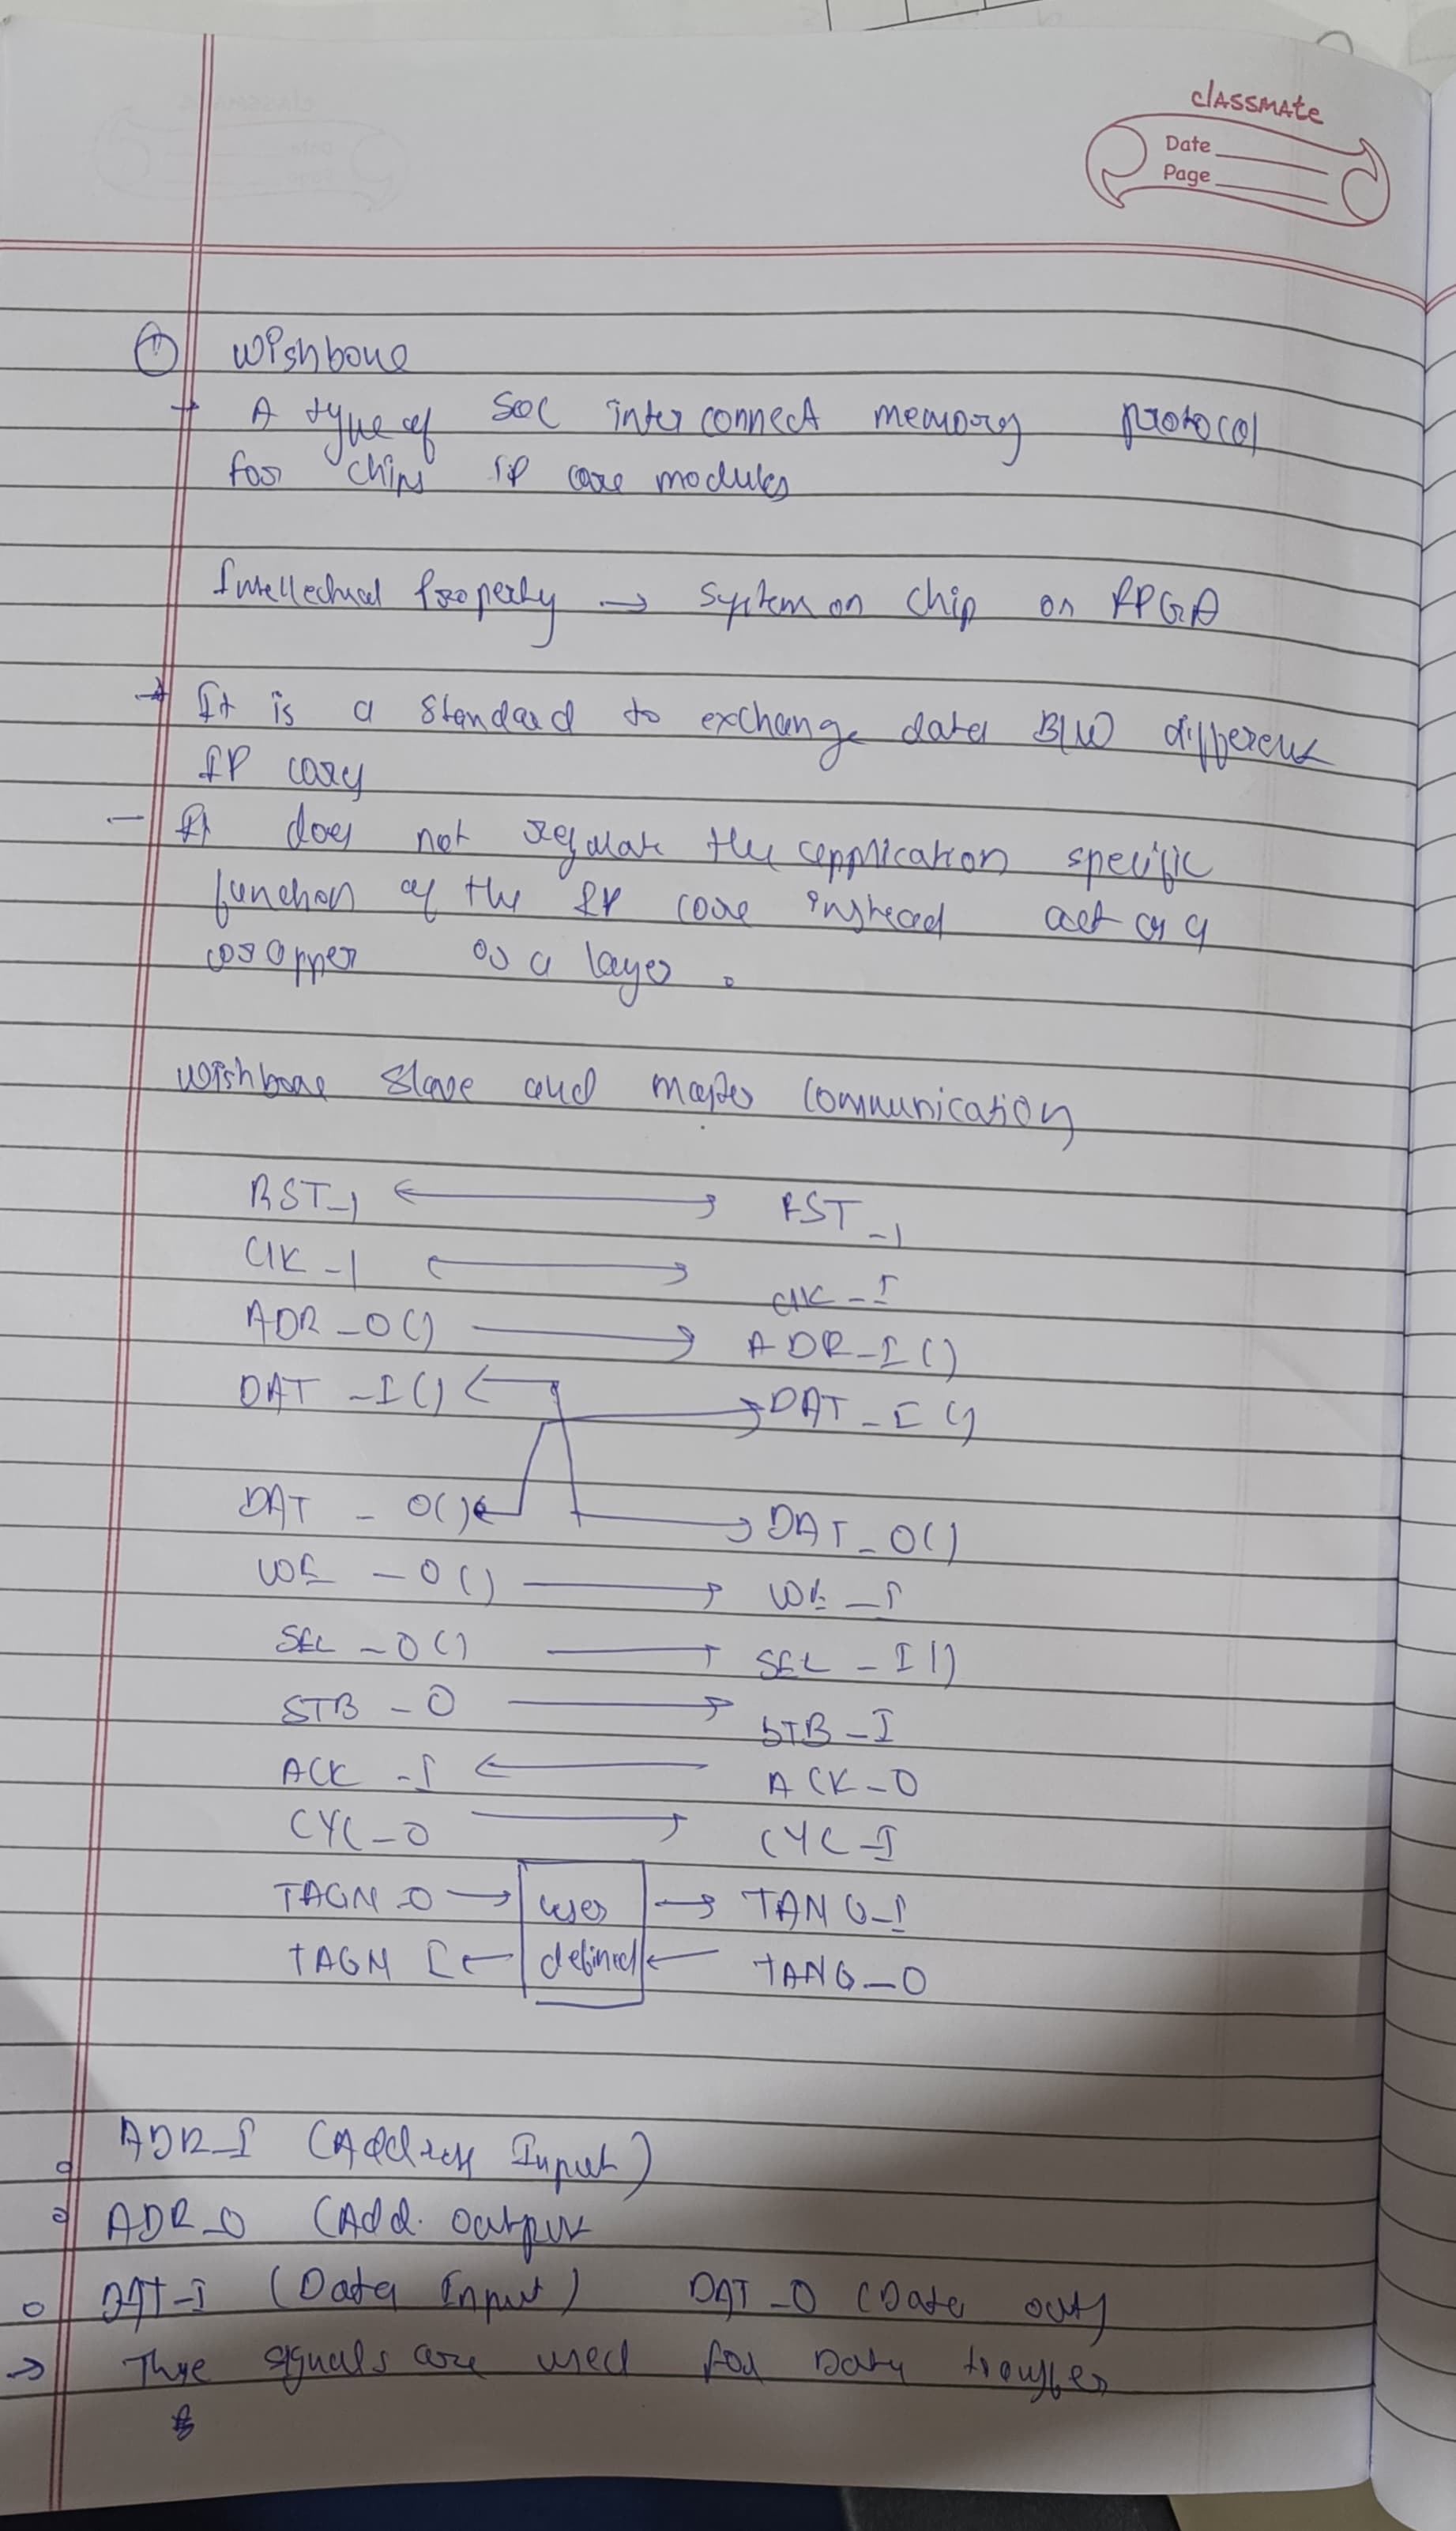 classmate
Date
Page
① Wishbone
→ A type of SOC interconnect memory protocol
for chips IP core modules
Intellectual Property → System on chip or FPGA
→ It is a standard to exchange data B/W different
IP cores
- It does not regulate the application specific
function of the IP core instead act as a
wrapper or a layer.
Wishbone Slave and master communication
RST_I ⟷ RST_I
CLK_I ⟷ CLK_I
ADR_O() → ADR_I()
DAT_I() ← → DAT_I()
DAT_O() ← → DAT_O()
WE_O() → WE_I
SEL_O() → SEL_I()
STB_O → STB_I
ACK_I ← ACK_O
CYC_O → CYC_I
TAGN_O → user → TANG_I
TAGN I ← defined ← TANG_O
ADR_I (Address Input)
ADR_O (Add. output
DAT_I (Data Input) DAT_O (Data out)
→ These signals are used for Data transfer